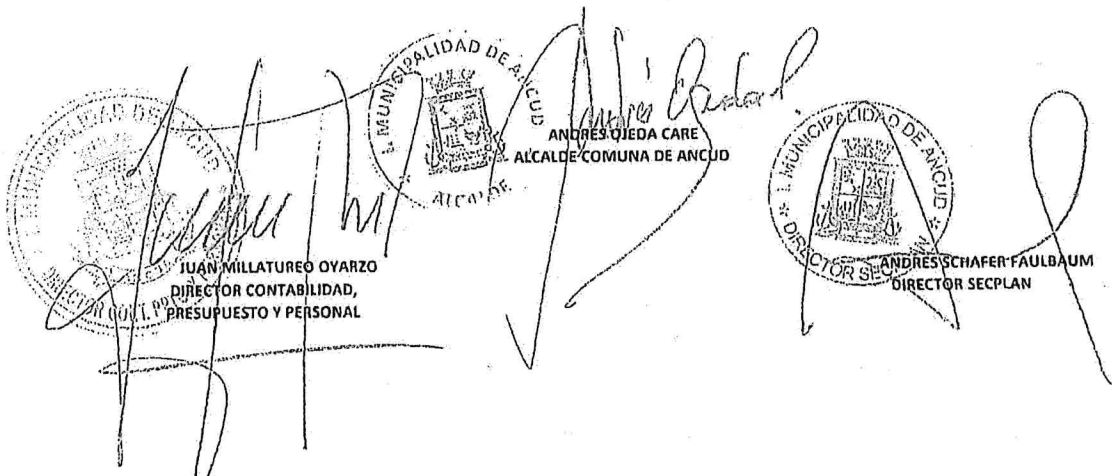 I. MUNICIPALIDAD DE ANCUD
ALCALDE
ANDRES OJEDA CARE
ALCALDE COMUNA DE ANCUD
I. MUNICIPALIDAD DE ANCUD
JUAN MILLATUREO OYARZO
DIRECTOR CONTABILIDAD,
PRESUPUESTO Y PERSONAL
I. MUNICIPALIDAD DE ANCUD
DIRECTOR
ANDRES SCHAFER FAULBAUM
DIRECTOR SECPLAN